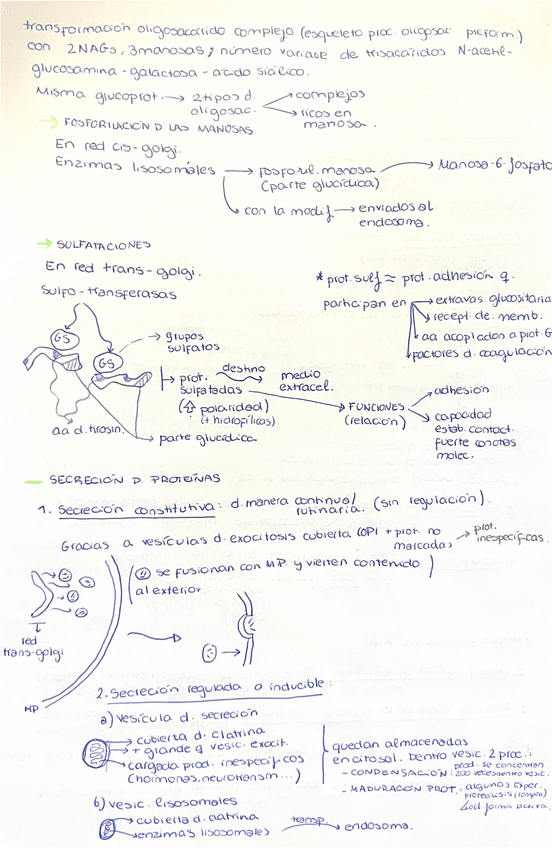 transformación oligosacárido complejo (esqueleto proc. oligosac. preform.)
con 2NAGs, 3manosas y número variable de trisacáridos N-acetil-
glucosamina-galactosa-ácido siálico.
Misma glucoprot. → 2 tipos d. oligosac.
→ complejos
→ ricos en manosa.
→ FOSFORILACIÓN D. LAS MANOSAS
En red cis-golgi.
Enzimas lisosomales → fosforil. manosa → Manosa-6-fosfato
(parte glucídica)
con la modif → enviados al
endosoma.
→ SULFATACIONES
En red trans-golgi.
Sulfo-transferasas
* prot. sulf ≈ prot. adhesión q.
participan en → extravas. glucositaria
→ recept. de memb.
→ aa acoplados a prot. G
factores d. coagulación
GS
GS
→ grupos
sulfatos
→ prot.
sulfatadas
destino
medio
extracel.
(⇧ polaridad)
(+ hidrofílicas)
→ FUNCIONES
(relación)
→ adhesión
→ capacidad
estab. contact.
fuerte con otras
molec.
aa d. tirosin.
→ parte glucídica
– SECRECIÓN D. PROTEÍNAS
1. Secreción constitutiva: d manera continua/
rutinaria. (sin regulación).
Gracias a vesículas d. exocitosis cubierta COPI + prot. no
marcadas → prot.
inespecíficas.
se fusionan con MP y vierten contenido
al exterior
red
trans-golgi
MP
2. Secreción regulada o inducible:
a) vesícula d. secreción
→ cubierta d. clatrina
→ + grande q vesic. exocit.
→ cargada prod. inespecíficos
(hormonas, neurotransm...)
quedan almacenadas
en citosol. Dentro vesic. 2 proc.:
- CONDENSACIÓN: prod. se concentran
200 veces dentro vesic.
- MADURACIÓN PROT.: algunas exper.
proteólisis (rompen)
forma activa.
b) vesic. lisosomales
→ cubierta d. clatrina
→ enzimas lisosomales
transp.
→ endosoma.